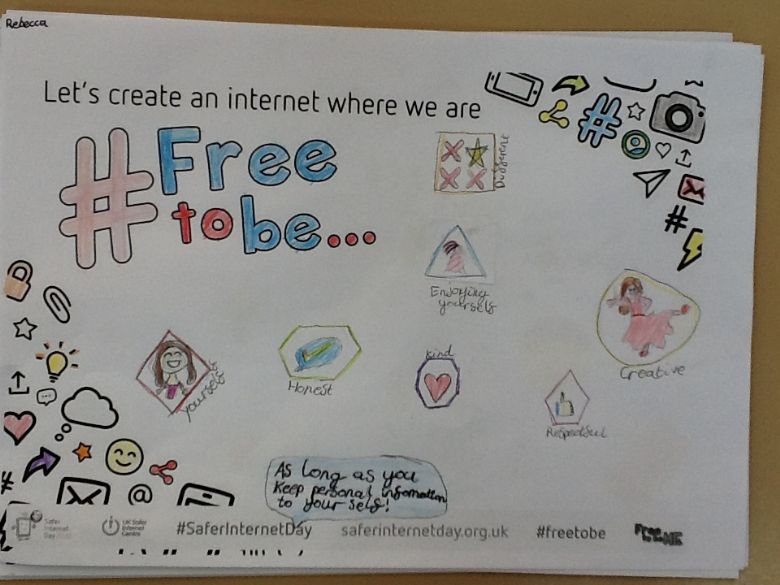 Rebecca
Let's create an internet where we are
#Free
to be...
Different
Enjoying
yourself
yourself
Honest
Kind
Creative
Respectful
As long as you
Keep personal information
to your self!
Safer
Internet
Day
UK Safer
Internet
Centre
#SaferInternetDay
saferinternetday.org.uk
#freetobe
Free
to be ME
@